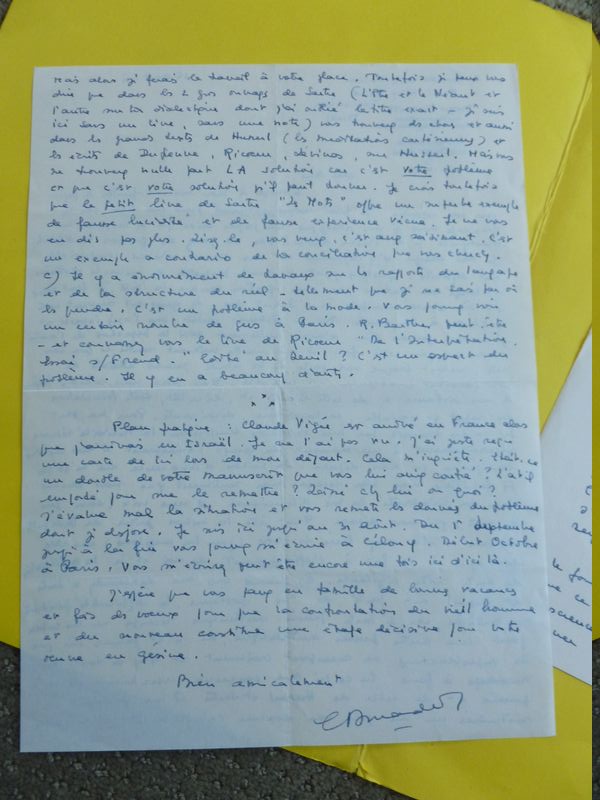 mais alors je ferais le travail à votre place. Toutefois je peux vous
dire que dans les 2 gros ouvrages de Sartre (L'Etre et le Néant et
l'autre sur la dialectique dont j'ai oublié le titre exact - je suis
ici sans un livre, sans une note) vous trouverez des choses et aussi
dans les grands textes de Husserl (les méditations cartésiennes) et
les écrits de Dufrenne, Ricoeur, Levinas, sur Husserl. Mais vous
ne trouverez nulle part LA solution car c'est votre problème
et que c'est votre solution qu'il faut donner. Je crois toutefois
que le petit livre de Sartre "Les Mots" offre un superbe exemple
de fausse lucidité et de fausse expérience vécue. Je ne vous
en dis pas plus. Lisez-le, vous verrez, c'est assez saisissant. C'est
un exemple a contrario de la conciliation que vous cherchez.
c) Il y a énormément de travaux sur les rapports du langage
et de la structure du réel - tellement que je ne sais par où
les prendre. C'est un problème à la mode. Vous pourrez voir
un certain nombre de gens à Paris. R. Barthes peut-être
- et connaissez-vous le livre de Ricoeur "De l'Interprétation.
Essai s/ Freud." édité au Seuil ? C'est un aspect du
problème. Il y en a beaucoup d'autres.
Plan pratique : Claude Vigée est arrivé en France alors
que j'arrivais en Israël. Je ne l'ai pas vu. J'ai juste reçu
une carte de lui lors de mon départ. Cela m'inquiète. Etait-ce
un double de votre manuscrit que vous lui aviez confié ? L'a-t-il
emporté pour me le remettre ? Laissé chez lui ou quoi ?
J'évalue mal la situation et vous remets les données du problème
dont je dispose. Je suis ici jusqu'au 31 Août. Du 1er septembre
jusqu'à la fin vous pourrez m'écrire à . Début Octobre
à Paris. Vous m'écrirez peut être encore une fois ici d'ici là.
J'espère que vous en famille de bonnes vacances
et fais des voeux pour que la confrontation du vieil homme
et du nouveau constitue une étape décisive pour votre
oeuvre en gésine.
Bien amicalement